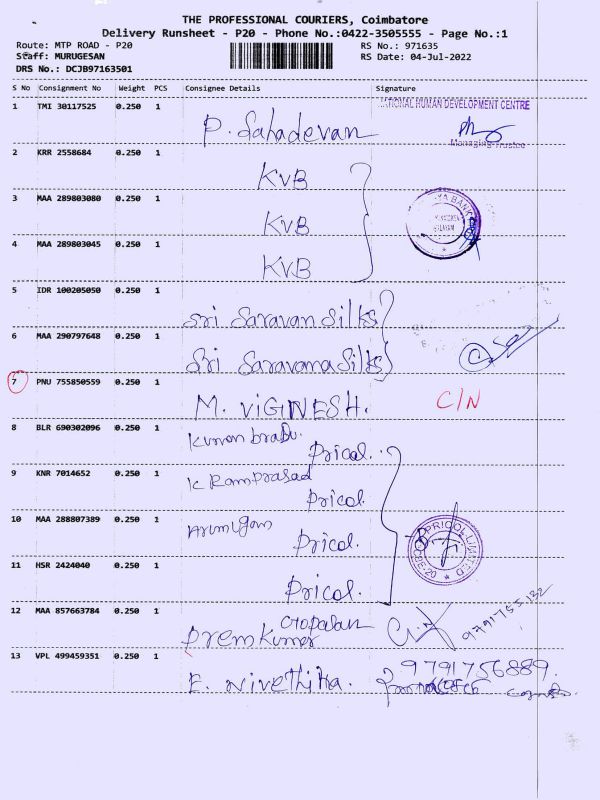 THE PROFESSIONAL COURIERS, Coimbatore
Delivery Runsheet - P20 - Phone No.:0422-3505555 - Page No.:1
Route: MTP ROAD - P20 RS No.: 971635
Staff: MURUGESAN RS Date: 04-Jul-2022
DRS No.: DCJB97163501
S No Consignment No Weight PCS Consignee Details Signature
1 TMI 30117525 0.250 1 NATIONAL HUMAN DEVELOPMENT CENTRE
P. Sahadevan
Managing Trustee
2 KRR 2558684 0.250 1
KVB
3 MAA 289803080 0.250 1
KVB
4 MAA 289803045 0.250 1
KVB
5 IDR 100205050 0.250 1
Sri Saravan Silks
6 MAA 290797648 0.250 1
Sri Saravana Silks
7 PNU 755850559 0.250 1
M. ViGINESH. C/N
8 BLR 690302096 0.250 1
Prical.
9 KNR 7014652 0.250 1
K Ramprasad
Prical.
10 MAA 288807389 0.250 1
Arumugam
Prical.
PRICOL LIMITED
11 HSR 2424040 0.250 1
Prical.
12 MAA 857663784 0.250 1
Gopalan
Premkumar
13 VPL 499459351 0.250 1
9791756889.
E. Nivethika.